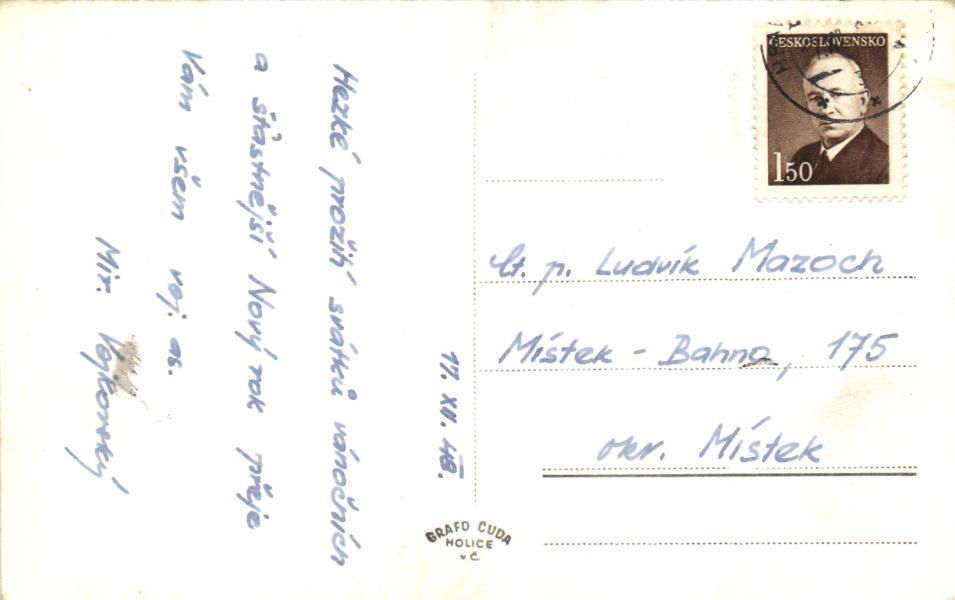 Hezké prožití svátků vánočních
a šťastnější Nový rok přeje
Vám všem voj. as.
Mir. Vojkovský
17. XII. 48.
ČESKOSLOVENSKO
1.50
Ct. p. Ludvík Mazoch
Místek - Bahno, 175
okr. Místek
GRAFO ČUDA
HOLICE
v Č